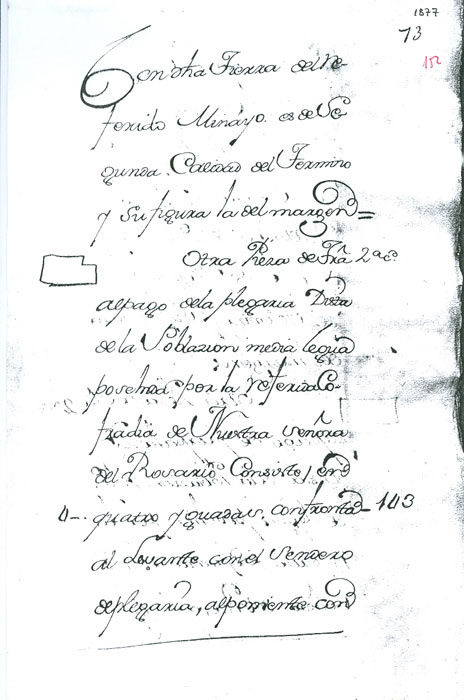 1877
73
152
Con otra Tierra del re-
ferido Minayo. es de Se-
gunda Calidad del Termino
y su figura la del margen =
Otra Pieza de Trã 2ª cº
al pago de la plegaria Dista
de la Poblazion media legua
posehida por la referida Co-
fradia de Nuestra señora
del Rosario Consiste, en
4-. quatro Yguadas. confronta - 143
al Levante con el Sendero
de plegaria, al poniente con